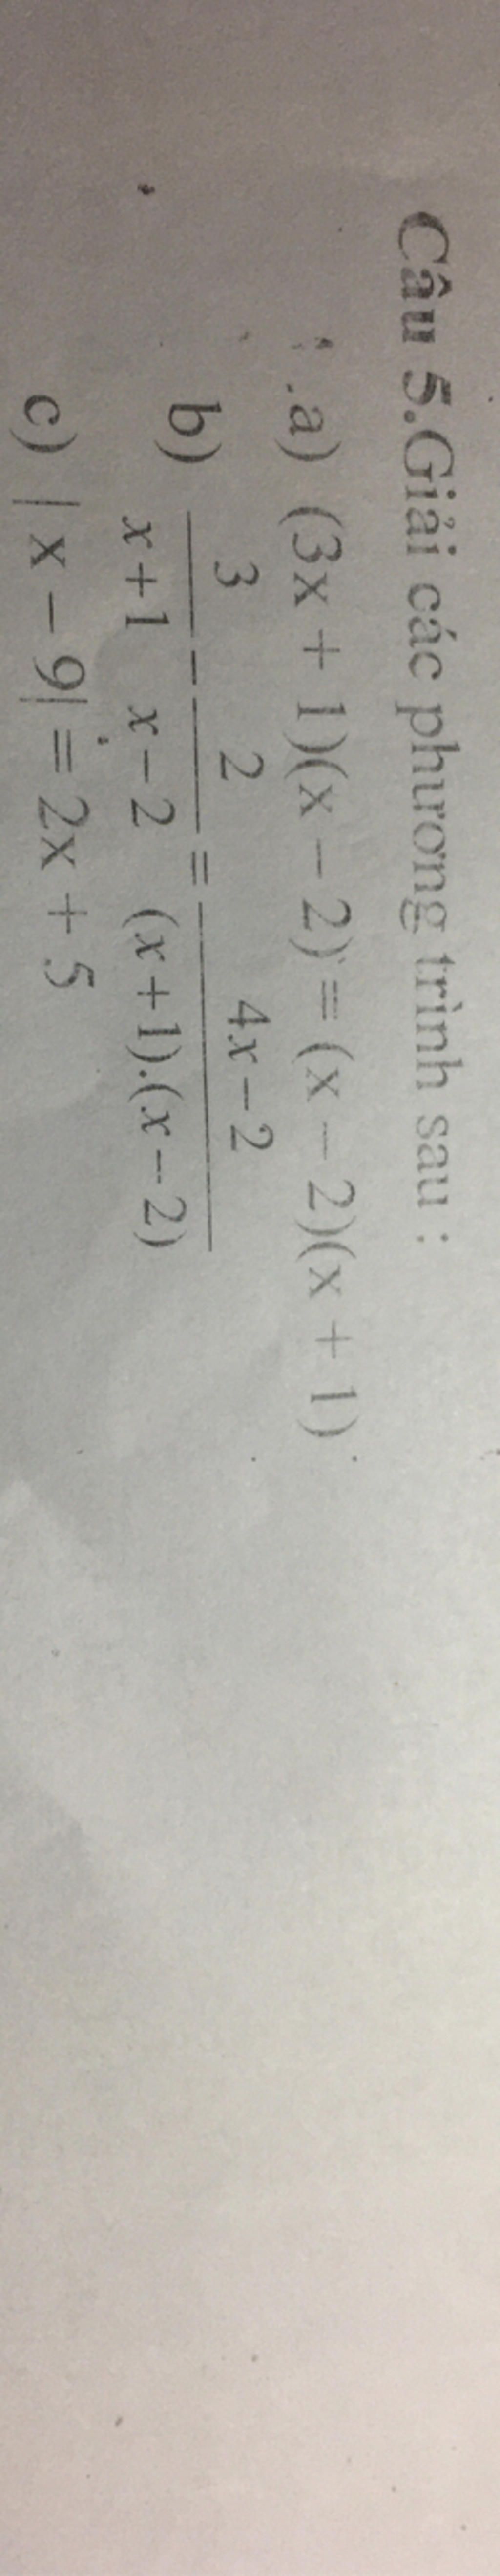 Câu 5.Giải các phương trình sau :
a) (3x + 1)(x – 2) = (x – 2)(x + 1)
b) \frac{3}{x+1} - \frac{2}{x-2} = \frac{4x-2}{(x+1).(x-2)}
c) | x – 9| = 2x + 5